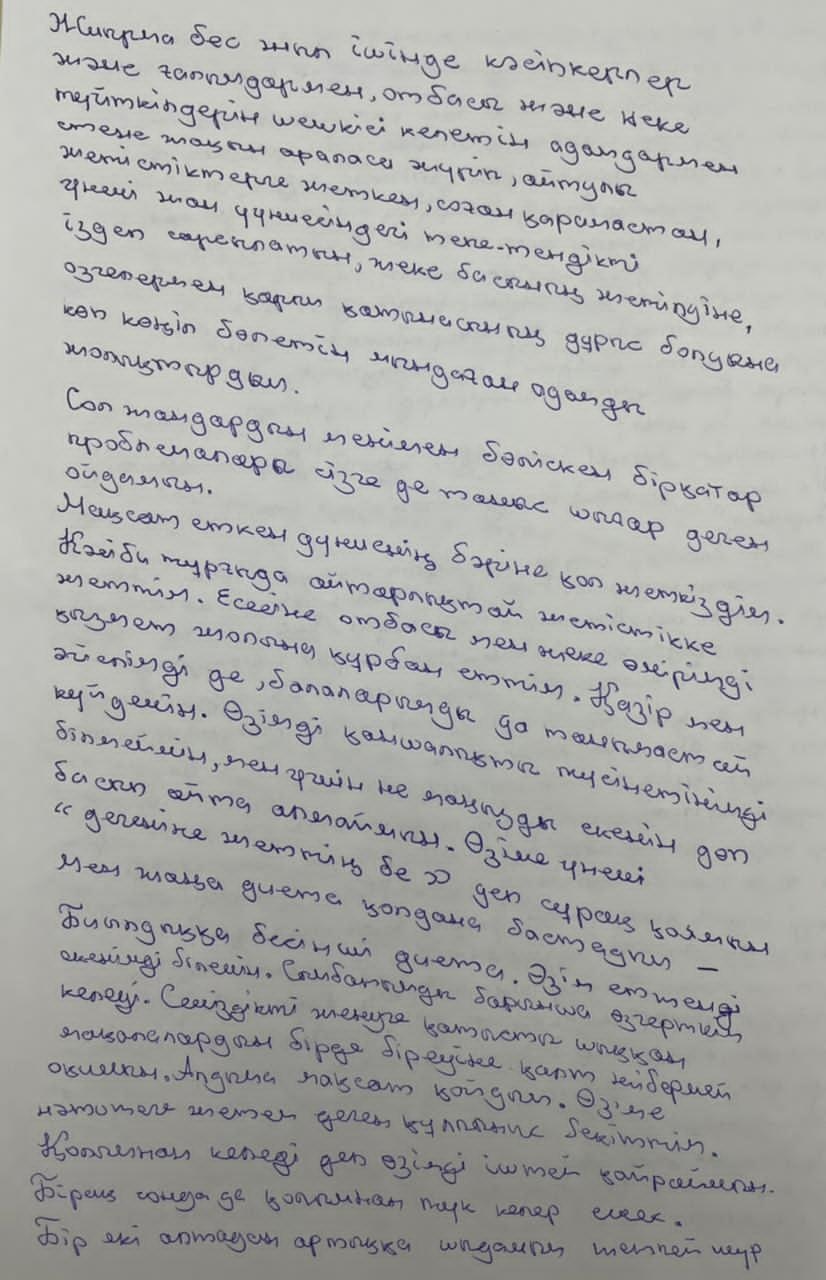 Жиырма бес жыл ішінде кәсіпкерлер
және ғалымдармен, отбасы және неке
түйткілдерін шешкісі келетін адамдармен
етене жақын араласа жүріп, айтулы
жетістіктерге жеткен, соған қарамастан,
үнемі жан дүниесіндегі тепе-теңдікті
іздеп сарылатын, жеке басының жетілуіне,
өзгелермен қарым қатынасының дұрыс болуына
көп көңіл бөлетін мыңдаған адамды
жолықтырдым.
Сол жандардың менімен бөліскен бірқатар
проблемалары сізге де таныс шығар деген
ойдамын.
Мақсат еткен дүниенің бәріне қол жеткіздім.
Кәсіби тұрғыда айтарлықтай жетістікке
жеттім. Есесіне отбасы мен жеке өмірімді
қызмет жолына құрбан еттім. Қазір мен
әйелімді де, балаларымды да танымастай
күйдемін. Өзімді қаншалықты түсінетінімді
білмеймін, мен үшін не маңызды екенін дөп
басып айта алмаймын. Өзіме үнемі
“ дегеніңе жеттің бе » деп сұрақ қоямын
Мен жаңа диета қолдана бастадым –
Биылдыққа бесінші диета. Өзім еттенді
екенімді білемін. Сымбатымды барынша өзгерткім
келеді. Семіздікті жеңуге қатысты шыққан
мақалалардың бірде біреуіне қалт жібермей
оқимын. Алдыма мақсат қойдым. Өзіме
нәтижеге жетем деген құлшыныс бекіттім.
Қолымнан келеді деп өзімді іштей қайраймын.
Бірақ сонда да қолымнан түк келер емес.
Бір екі аптадан артыққа шыдамым жетпей жүр